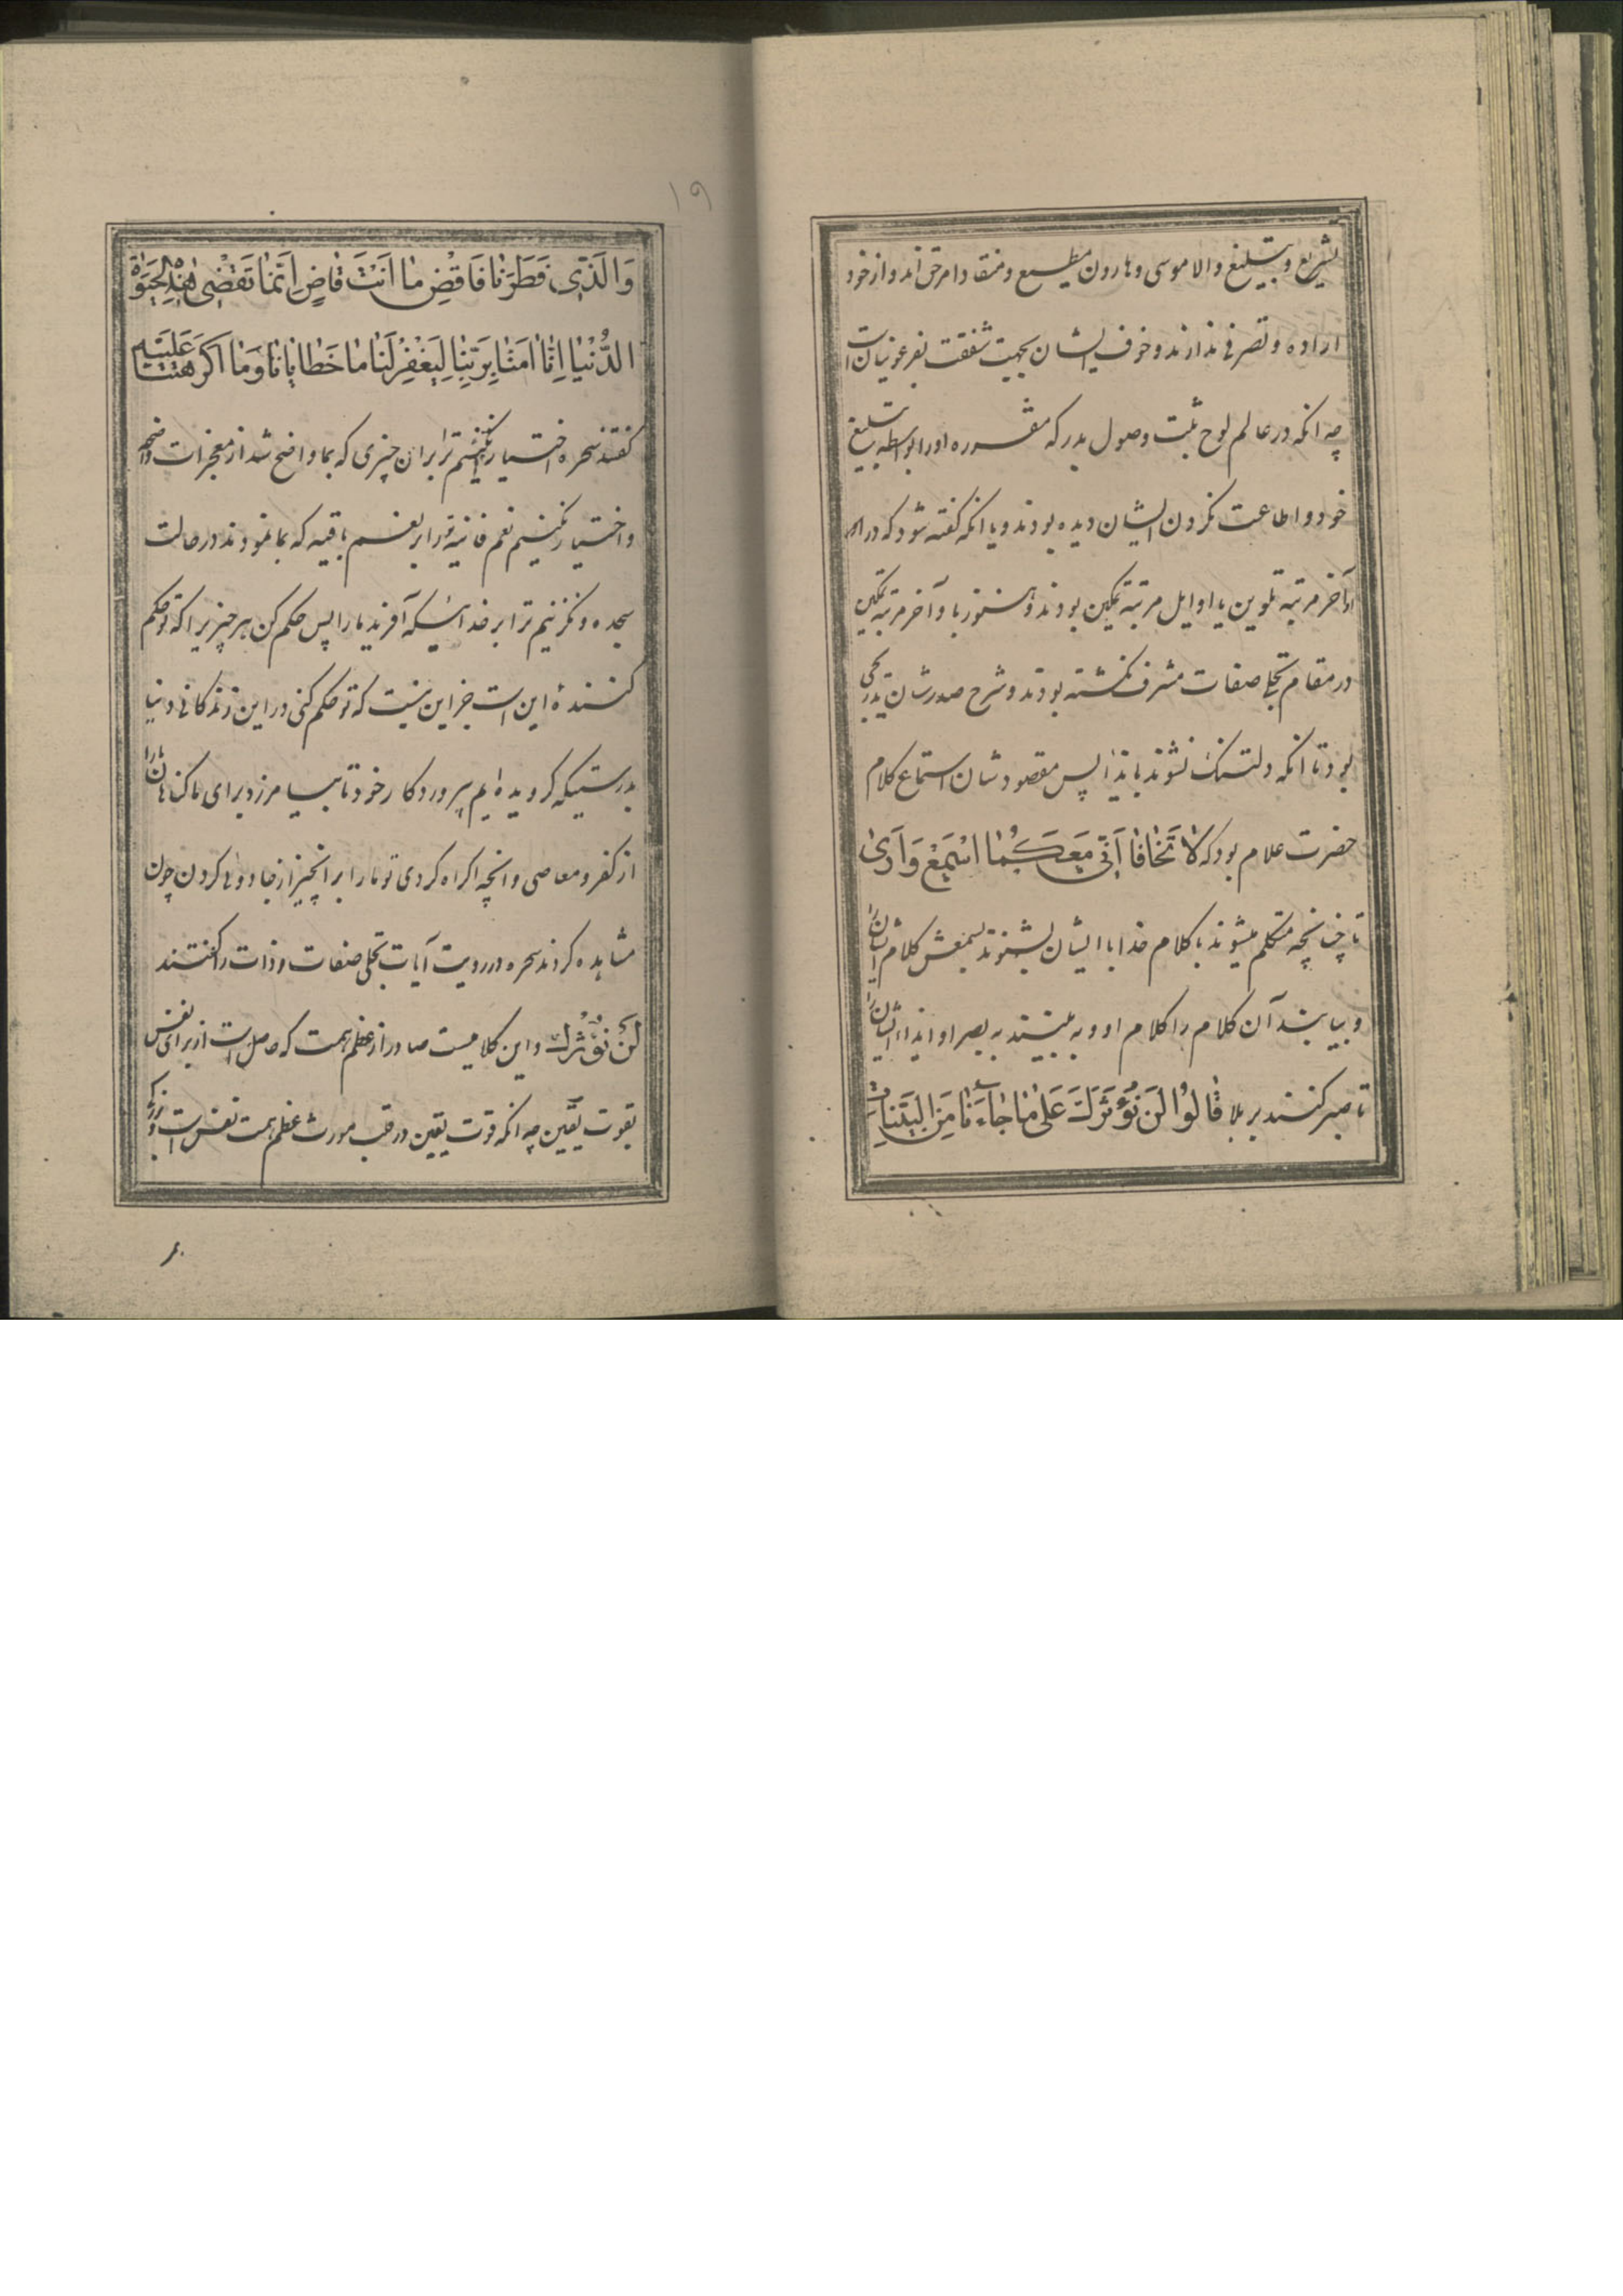 بشریع و تبلیغ والا موسی و هارون مطیع و منقاد امر حق‌اند و از خود
اراده و تصرفی ندارند و خوف ایشان بجهت شفقت بفرعونیان است
چه انکه در عالم لوح ثبت وصول بدرکه مقرره او را بواسطه تبلیغ
خود و اطاعت نکردن ایشان دیده بودند و یا انکه گفته شود که در
آخر مرتبه تلوین یا اوایل مرتبه تمکین بودند و هنوز با و آخر مرتبه تمکین
در مقام تجلی صفات مشرف نگشته بودند و شرح صدرشان تدریجی
بود تا انکه دلتنک نشوند بایذا پس مقصودشان استماع کلام
حضرت علام بود که لا تَخافا اِنَّنی مَعَکُما اَسْمَعُ وَ اَریٰ
تا چنانچه متکلم میشوند با کلام خدا با ایشان بشنوند بسمعش کلام ایشانرا
و بیابند آن کلام را کلام او و به بینند به بصر او ایذاء ایشانرا
تا صبر کنند بر بلا قٰالُوا لَن نُؤْثِرَکَ عَلیٰ مٰا جٰاءَنٰا مِنَ البَیِّنٰاتِ
۱۹
وَ الَّذی فَطَرَنٰا فَاقْضِ مٰا اَنْتَ قٰاضٍ اِنَّمٰا تَقْضی هٰذِهِ الحَیٰوةَ
الدُّنْیٰا اِنّٰا اٰمَنّٰا بِرَبِّنٰا لِیَغْفِرَ لَنٰا خَطٰایٰانٰا وَ مٰا اَکْرَهْتَنٰا عَلَیْهِ
گفتند سحره اختیار نکنیم ترا بران چیزی که بما واضح شد از معجزات واضحه
و اختیار نکنیم نعم فانیه ترا بر نعم باقیه که بما نمودند در حالت
سجده و نگزینیم ترا بر خدائیکه آفرید ما را پس حکم کن هر چیزیرا که تو حکم
کننده این است جز این نیست که تو حکم کنی در این زندگانی دنیا
بدرستیکه گرویده‌ایم بپروردگار خود تا بیامرزد برای ما گناهان ما را
از کفر و معاصی و انچه اکراه کردی تو ما را بر انچیز از جادوها کردن چون
مشاهده کردند سحره در رویت آیات تجلی صفات و ذات را گفتند
لَنْ نُؤْثِرَکَ و این کلامیست صادر از عظم همت که حاصل است از برای نفس
بقوت یقین چه انکه قوت یقین در قلب مورث عظم همت نفس است و